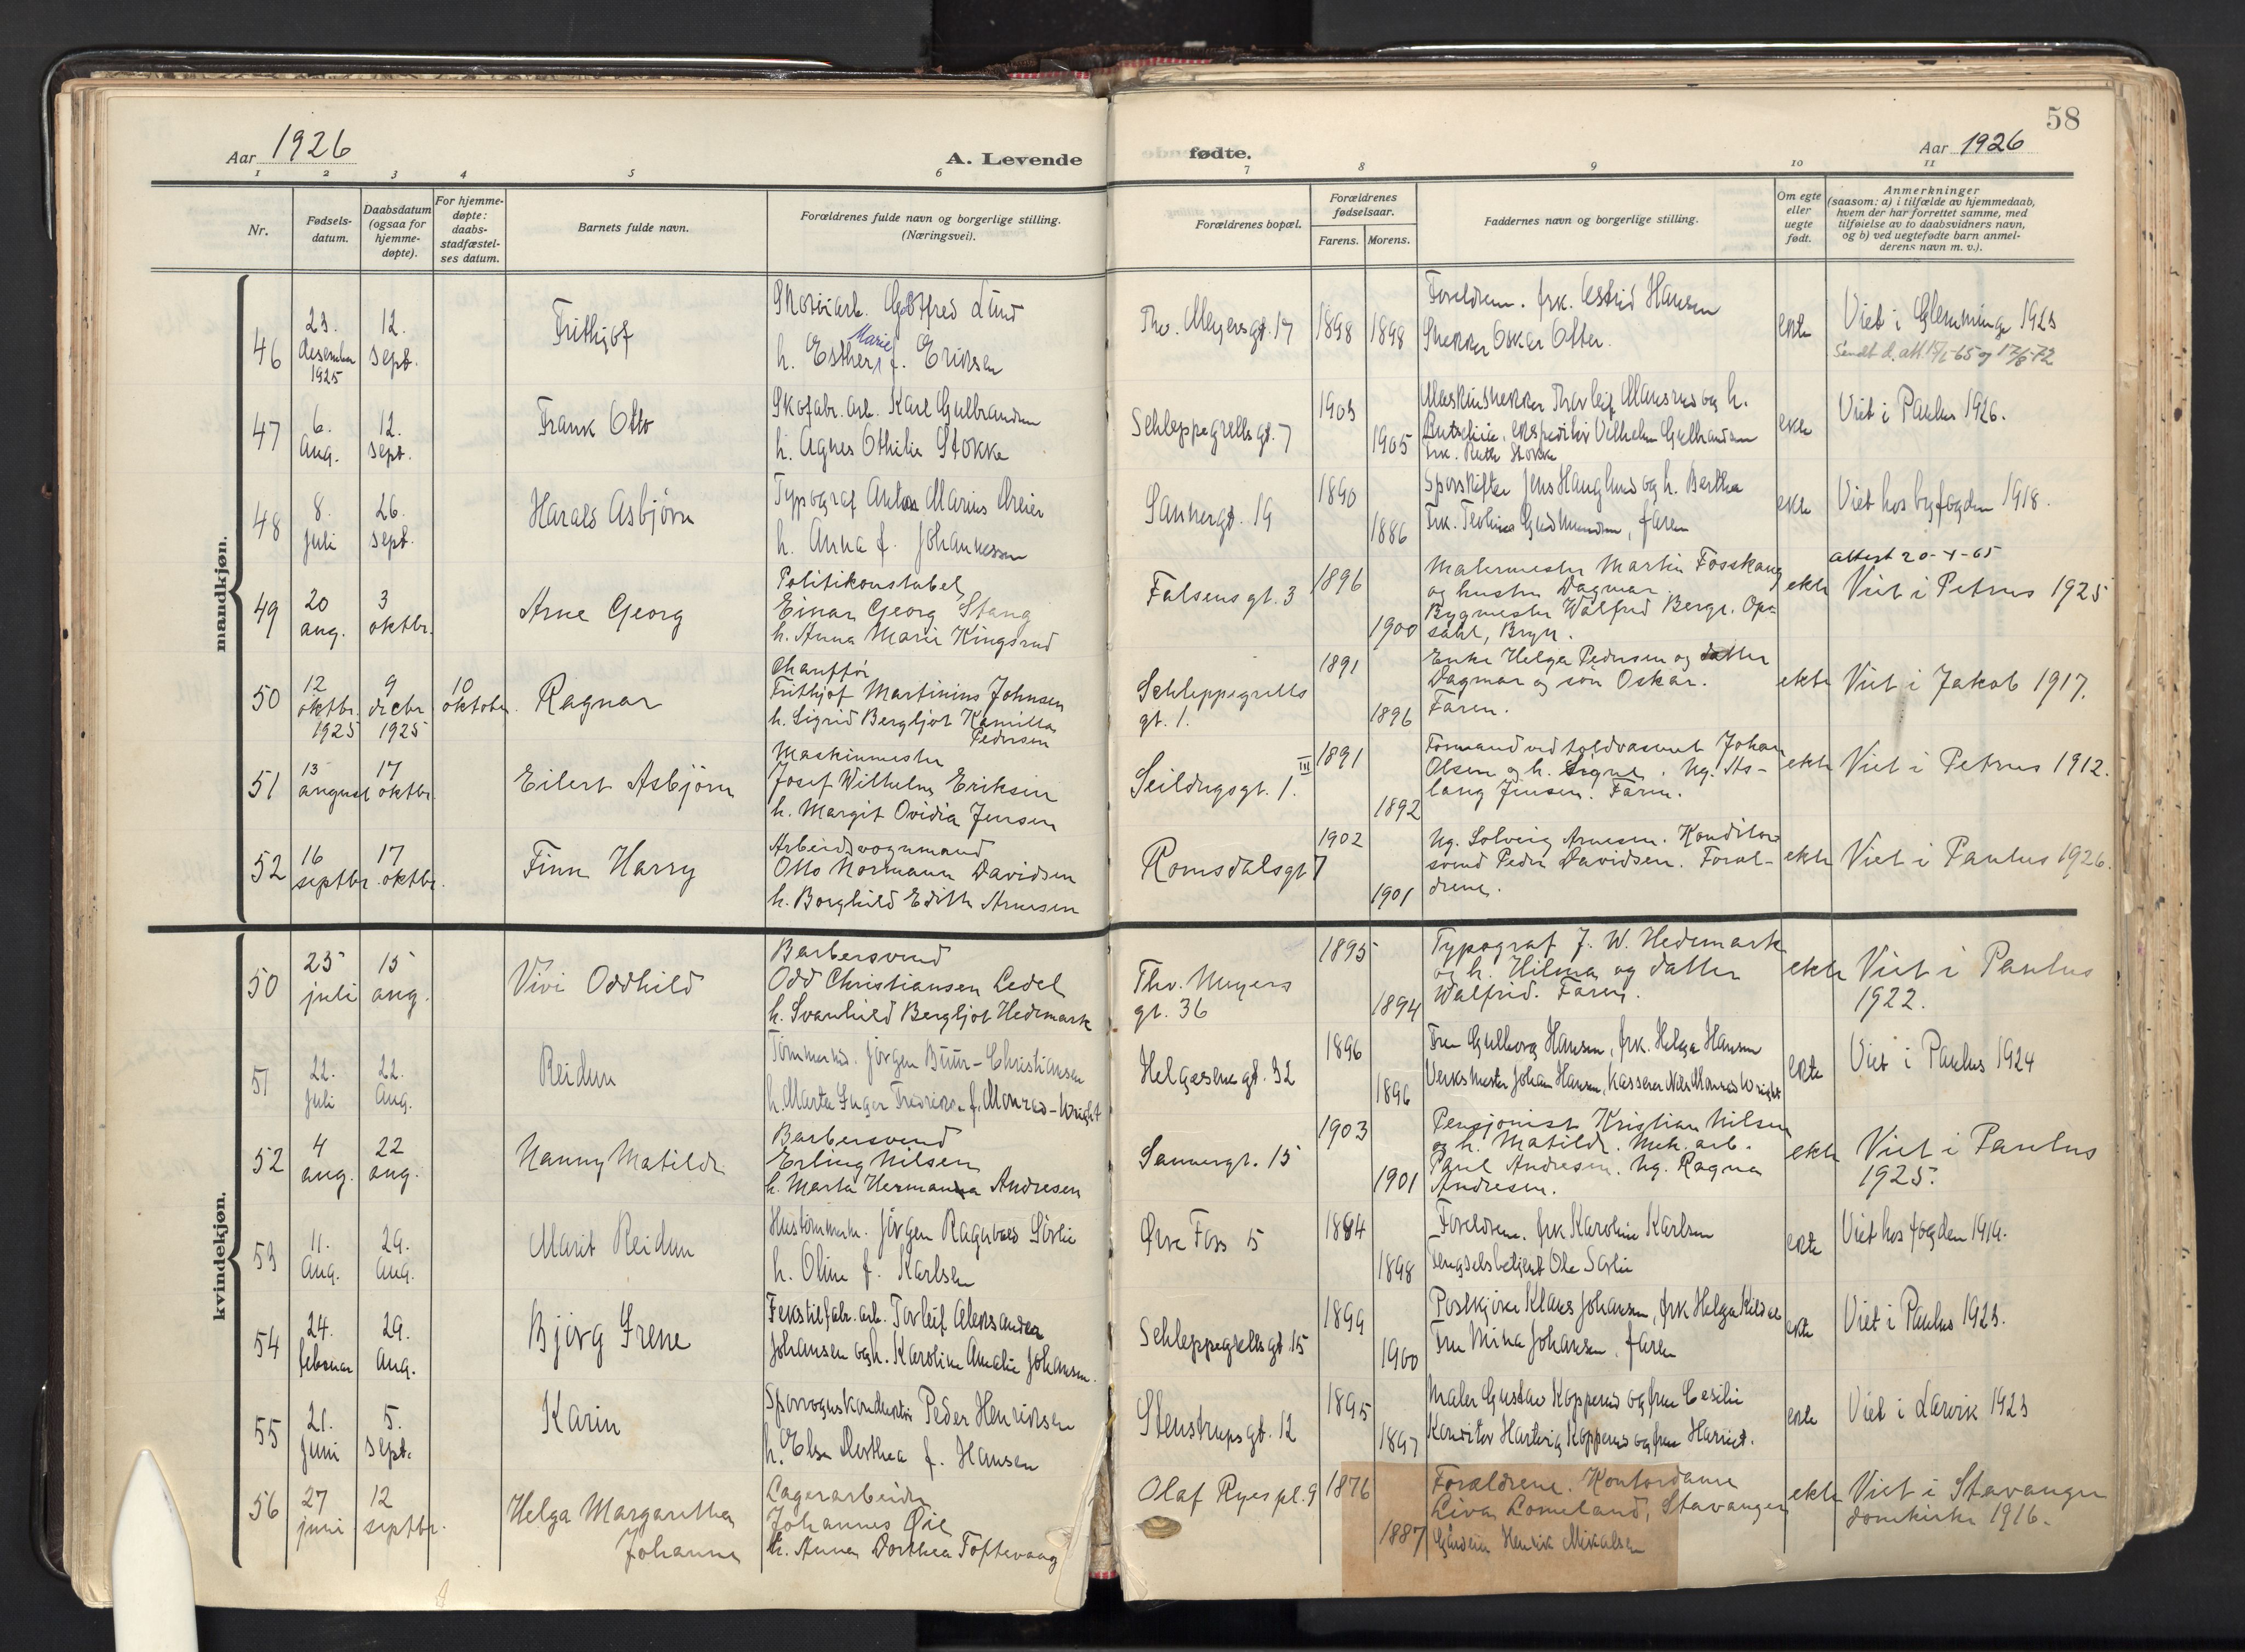 58
Aar 1926
A. Levende fødte.
Aar 1926
1 2 3 4 5 6 7 8 9 10 11
Nr.
Fødsels-
datum.
Daabsdatum
(ogsaa for
hjemme-
døpte).
For hjemme-
døpte:
daabs-
stadfæstel-
ses datum.
Barnets fulde navn.
Forældrenes fulde navn og borgerlige stilling.
(Næringsvei).
Forældrenes bopæl.
Forældrenes
fødselsaar.
Farens. Morens.
Faddernes navn og borgerlige stilling.
Om egte
eller
uegte
født.
Anmerkninger
(saasom: a) i tilfælde av hjemmedaab,
hvem der har forrettet samme, med
tilføielse av to daabsvidners navn,
og b) ved uegtefødte barn anmel-
derens navn m. v.).
mandkjøn.
46
23.
desember
1925
12.
sept.
Frithjof
Skotøiarb. Gotfred Lund
h. Esther Marie f. Eriksen
Thv. Meyersgt. 17
1898
1898
Foreldrene. frk. Astrid Hansen
Snekker Oskar Otter.
ekte
Viet i Glemminge 1923
Sendt d. att. 15/6-65 og 17/8-72
47
6.
Aug.
12.
sept.
Frank Otto
Skofabr. arb. Karl Gulbrandsen
h. Agnes Othilie Stokke
Schleppegrellsgt. 7
1903
1905
Maskinsnekker Thorleif Mansrud og h.
ekspeditør Vilhelm Gulbrandsen
Frk. Ruth Stokke
ekte
Viet i Paulus 1926.
48
8.
juli
26.
sept.
Harald Asbjørn
Typograf Anton Marius Dreier
h. Anna f. Johannessen
Sannergt. 19
1890
1886
Sporskifter Jens Hauglund og h. Bertha
Frk. Teoline Gudmundsen, faren
ekte
Viet hos byfogden 1918.
49
20
aug.
3
oktbr.
Arne Georg
Politikonstabel
Einar Georg Stang
h. Anna Marie Kingsrud
Falsensgt. 3
1896
1900
Malermester Martin Fosskaug
og hustru Dagmar.
Bygmester Walfred Bergr. Op-
sahl, Bryn.
ekte
attest 20-X-65
Viet i Petrus 1925
50
12
oktbr.
1925
9
decbr
1925
10
oktober
Ragnar
Chauffør
Frithjof Martinius Johnsen
h. Sigrid Bergljot Kamilla
Pedersen
Schleppegrells
gt. 1.
1891
1896
Enke Helga Pedersen og datter
Dagmar og søn Oskar.
Faren.
ekte
Viet i Jakob 1917.
51
13
august
17
oktbr.
Eilert Asbjørn
Maskinmester
Josef Wilhelm Eriksen
h. Margit Ovidia Jensen
Seildugsgt. 1. III
1891
1892
Formand ved toldvæsenet Johan
Olsen og h. Signe. Ug. As-
laug Jensen. Faren.
ekte
Viet i Petrus 1912.
52
16
septbr.
17
oktbr.
Finn Harry
Arbeidsvognmand
Otto Normann Davidsen
h. Borghild Edith Arnesen
Romsdalsgt 7
1902
1901
Ug. Solveig Arnesen. Konditor
svend Peder Davidsen. Foræl-
drene.
ekte
Viet i Paulus 1926.
kvindekjøn.
50
25
juli
15
aug.
Vivi Oddhild
Barbersvend
Odd Christiansen Ledel
h. Svanhild Bergljot Hedemark
Thv. Meyers
gt. 36
1895
1894
Typograf J. W. Hedemark
og h. Hilma og datter
Walfrid. Faren.
ekte
Viet i Paulus
1922.
51
22.
juli
22.
Aug.
Reidun
Tømmerm. Jørgen Buur-Christiansen
h. Marta Inger Fredrikke f. Monrad-Wright
Helgesensgt. 32
1896
1896
Fru Gulborg Hansen, frk. Helga Hansen
Verksmester Johan Hansen, kasserer Nils Monrad Wright
ekte
Viet i Paulus 1924
52
4
aug.
22
aug.
Nanny Matilde
Barbersvend
Erling Nilsen
h. Marta Hermanna Andresen
Sannergt. 15
1903
1901
Pensjonist Kristian Nilsen
og h. Matilde. Mek. arb.
Paul Andresen. Ug. Ragna
Andresen.
ekte
Viet i Paulus
1925.
53
11.
Aug.
29.
Aug.
Marit Reidun
Hustømmerm. Jørgen Ragnvald Sørlie
h. Oline f. Karlsen
Øvre Foss 5
1884
1898
Foreldrene. frk Karoline Karlsen
Fengselsbetjent Ole Sørlie
ekte
Viet hos fogden 1919.
54
24.
februar
29.
Aug.
Bjørg Irene
Tekstilfabr. arb. Torleif Aleksander
Johansen og h. Karoline Amalie Johansen.
Schleppegrellsgt. 15
1899
1900
Postkjører Klaus Johansen, frk Helga Kildal
Fru Mina Johansen, faren
ekte
Viet i Paulus 1923.
55
21.
juni
5.
sept.
Karin
Sporvognskonduktør Peder Henriksen
h. Elsa Dorthea f. Hansen
Stenstrupsgt. 12
1895
1897
Maler Gustav Kopperud og fru Cesilie
Konditor Hartvig Kopperud og fru Harriet.
ekte
Viet i Larvik 1923
56
27
juni
12
septbr.
Helga Margarethe
Johanne
Lagerarbeider
Johannes Øie
h. Anna Dorthea Toftevaag
Olaf Ryes pl. 9
1876
1887
Forældrene. Kontordame
Liva Lomeland, Stavanger
Henrik Mikalsen
ekte
Viet i Stavanger
domkirke 1916.